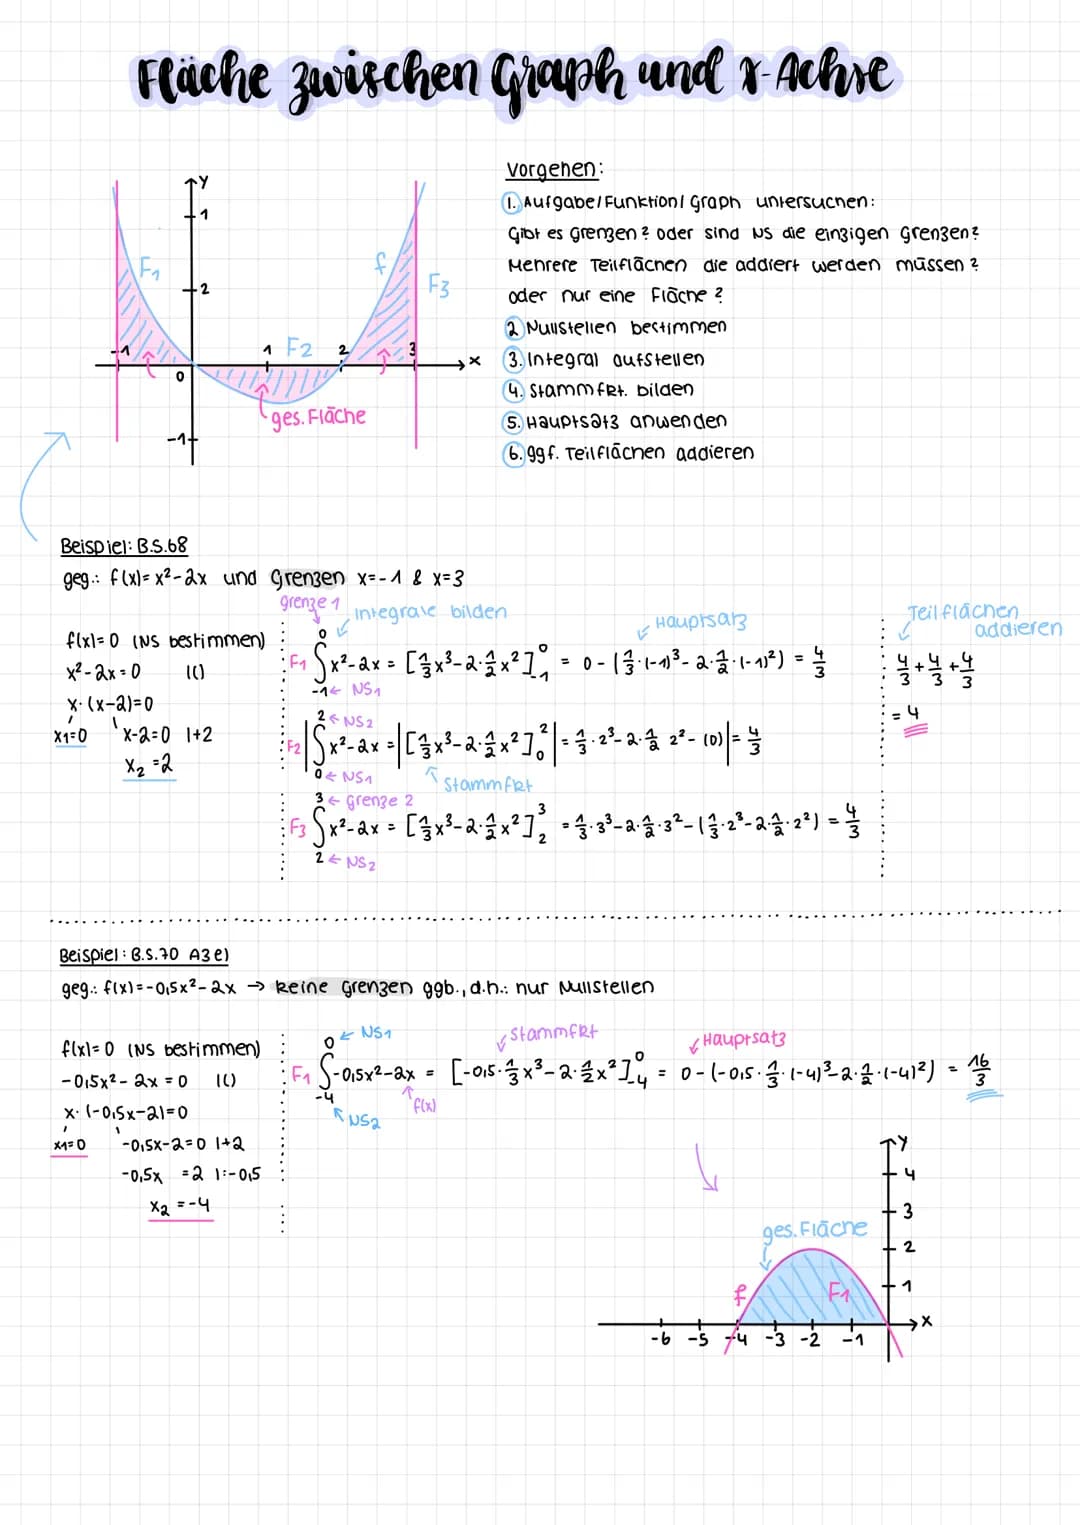 Fläche zwischen Graph und x-Achse
Vorgehen:
1. Aufgabe/Funktion/Graph untersuchen:
Gibt es Grenzen? oder sind NS die einzigen Grenzen?
Mehrere Teilflächen die addiert werden müssen?
oder nur eine Fläche?
2. Nullstellen bestimmen
3. Integral aufstellen
4. Stammfkt. bilden
5. Hauptsatz anwenden
6. ggf. Teilflächen addieren
y
1
2
F₁
f
F₃
-1
1
F₂
2
3
x
0
ges. Fläche
-1
Beispiel: B.S.68
geg.: f(x)= x²-2x und Grenzen x=-1 & x=3
f(x)=0 (NS bestimmen)
x²-2x=0 |()
x·(x-2)=0
x1=0 x-2=0 |+2
x₂=2
Grenze 1
Integrale bilden
Hauptsatz
F₁ ∫ x²-2x = [⅓x³-2·½x²]⁰₋₁ = 0-(⅓·(-1)³-2·½·(-1)²) = 4/3
0
-1 ← NS₁
2 ← NS₂
F₂ |∫ x²-2x = |[⅓x³-2·½x²]²₀| = ⅓·2³-2·½ 2²-(0)| = 4/3
0 ← NS₁
Stammfkt
3 ← Grenze 2
F₃ ∫ x²-2x = [⅓x³-2·½x²]³₂ = ⅓·3³-2·½·3²-(⅓·2³-2·½·2²) = 4/3
2 ← NS₂
Teilflächen
addieren
4/3+4/3+4/3
= 4
Beispiel: B.S.70 A3e)
geg.: f(x)=-0,5x²-2x → keine Grenzen ggb., d.h.: nur Nullstellen
f(x)=0 (NS bestimmen)
-0,5x²-2x=0 |()
x·(-0,5x-2)=0
x1=0 -0,5x-2=0 |+2
-0,5x =2 |:-0,5
x₂=-4
0 ← NS1
Stammfkt
Hauptsatz
F₁ ∫ -0,5x²-2x = [-0,5·⅓x³-2·½x²]⁰₋₄ = 0-(-0,5·⅓·(-4)³-2·½·(-4)²) = 16/3
-4
f(x)
NS2
y
4
3
2
1
ges. Fläche
f
F₁
x
-6 -5 -4 -3 -2 -1